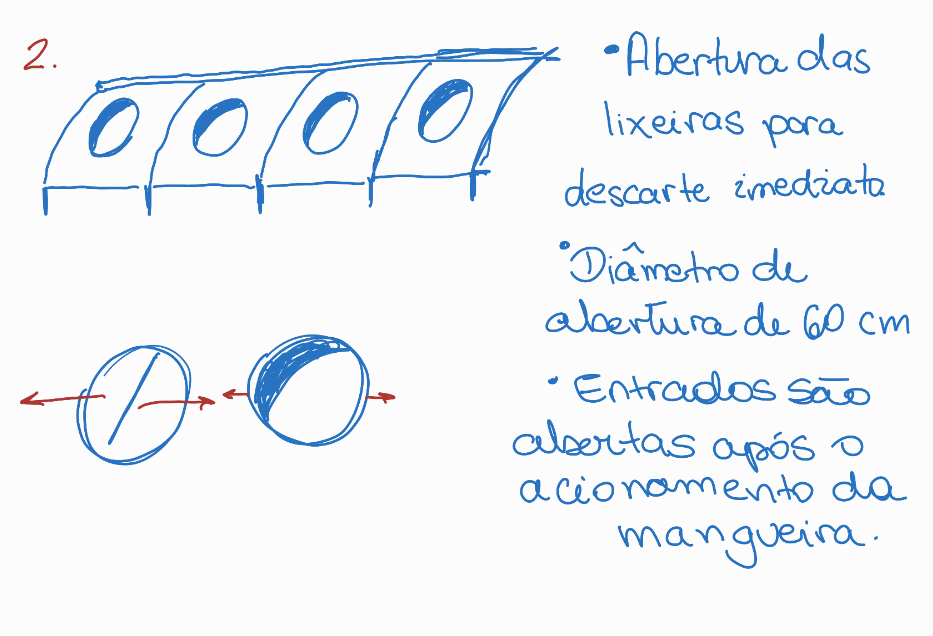 2.
• Abertura das
lixeiras para
descarte imediato
• Diâmetro de
abertura de 60 cm
• Entradas são
abertas após o
acionamento da
mangueira.